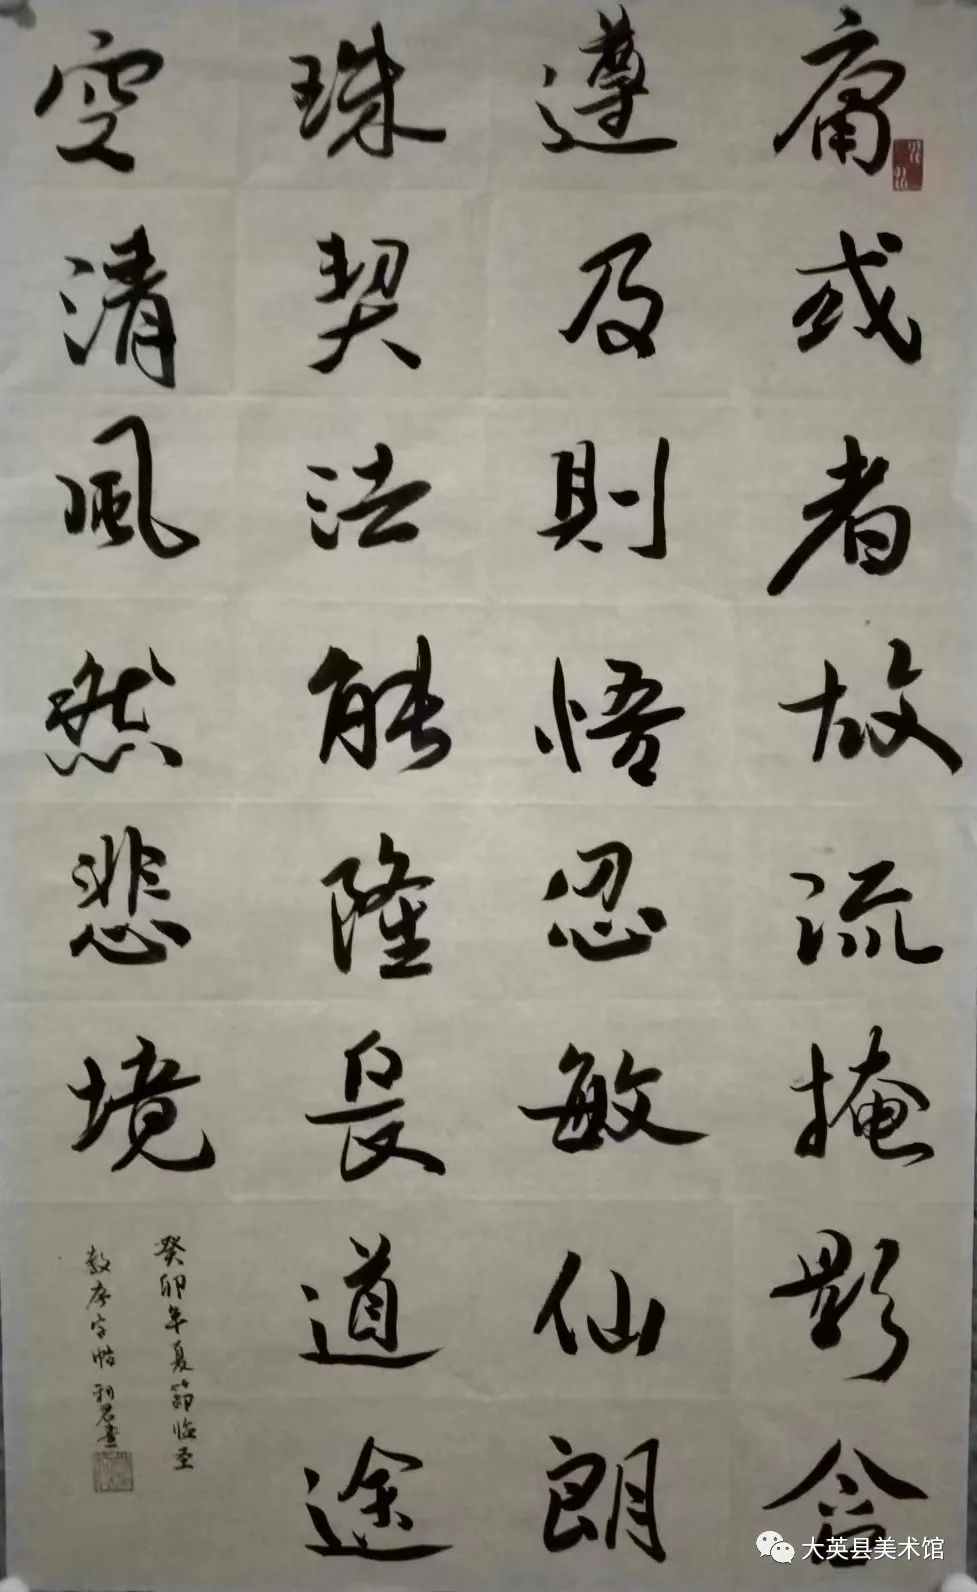 庸或者故流掩影含
遵及則悟忍敏仙朗
珠契法能隆長道途
空清風然悲境
癸卯年夏節临圣
教序字帖 利君書
大英县美术馆